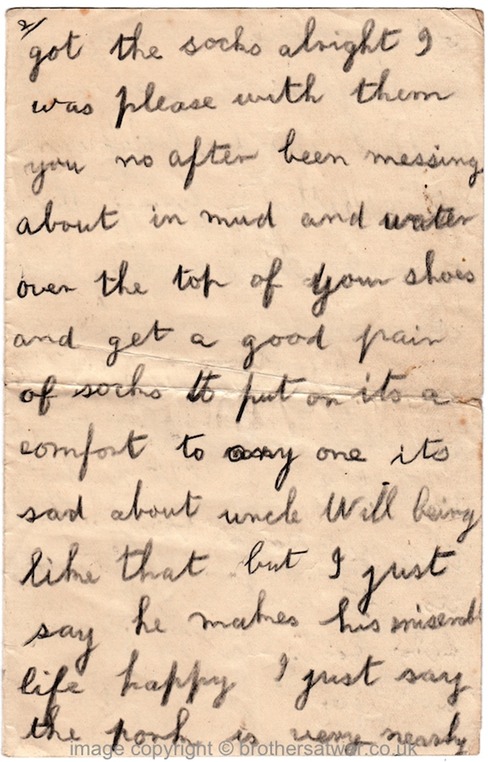 2/
got the socks alright I
was please with them
you no after been messing
about in mud and water
over the top of your shoes
and get a good pair
of socks to put on its a
comfort to any one its
sad about uncle Will being
like that but I just
say he makes his miserabl
life happy I just say
the pork is very nearly
image copyright © brothersatwar.co.uk